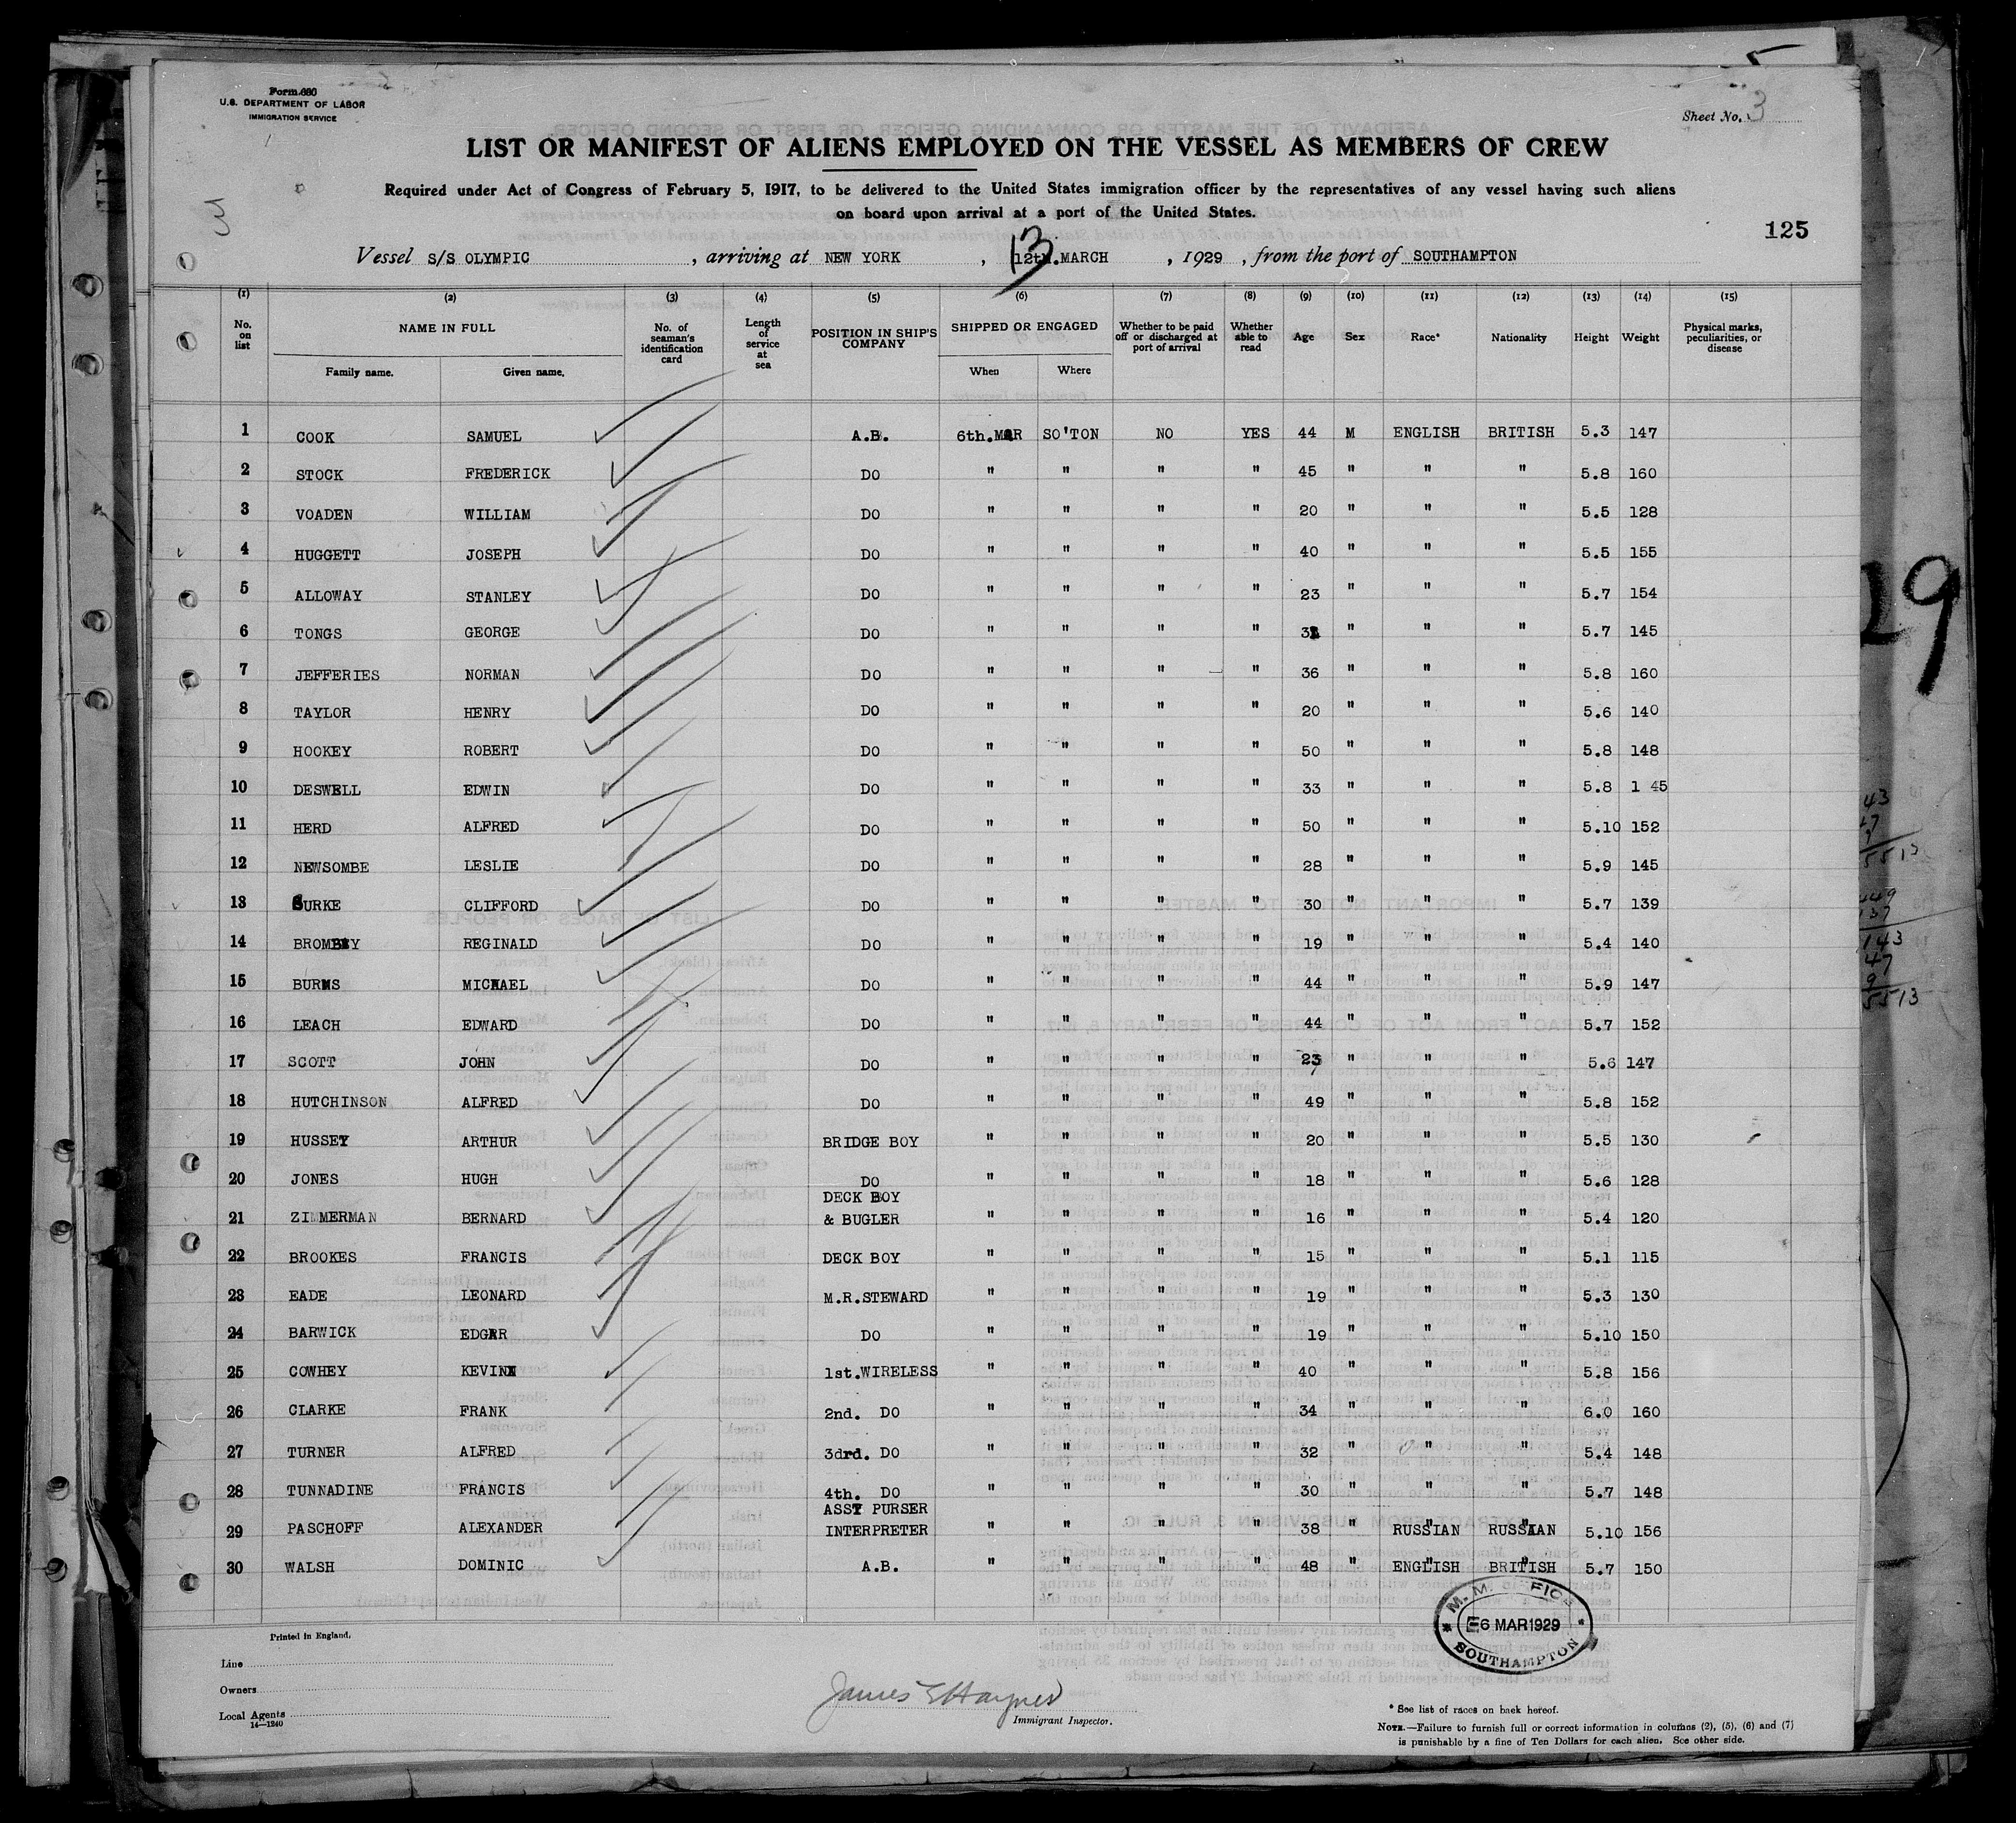 Form 680
U.S. DEPARTMENT OF LABOR
IMMIGRATION SERVICE
Sheet No. 3
LIST OR MANIFEST OF ALIENS EMPLOYED ON THE VESSEL AS MEMBERS OF CREW
Required under Act of Congress of February 5, 1917, to be delivered to the United States immigration officer by the representatives of any vessel having such aliens
on board upon arrival at a port of the United States.
3
125
Vessel S/S OLYMPIC , arriving at NEW YORK , 12th. 13 MARCH , 1929 , from the port of SOUTHAMPTON
(1) (2) (3) (4) (5) (6) (7) (8) (9) (10) (11) (12) (13) (14) (15)
No. on list NAME IN FULL Family name. Given name. No. of seaman's identification card Length of service at sea POSITION IN SHIP'S COMPANY SHIPPED OR ENGAGED When Where Whether to be paid off or discharged at port of arrival Whether able to read Age Sex Race* Nationality Height Weight Physical marks, peculiarities, or disease
1 COOK SAMUEL A.B. 6th.MAR SO'TON NO YES 44 M ENGLISH BRITISH 5.3 147
2 STOCK FREDERICK DO " " " " 45 " " " 5.8 160
3 VOADEN WILLIAM DO " " " " 20 " " " 5.5 128
4 HUGGETT JOSEPH DO " " " " 40 " " " 5.5 155
5 ALLOWAY STANLEY DO " " " " 23 " " " 5.7 154
6 TONGS GEORGE DO " " " " " " " 5.7 145
7 JEFFERIES NORMAN DO " " " " 36 " " " 5.8 160
8 TAYLOR HENRY DO " " " " 20 " " " 5.6 140
9 HOOKEY ROBERT DO " " " " 50 " " " 5.8 148
10 DESWELL EDWIN DO " " " " 33 " " " 5.8 1 45
11 HERD ALFRED DO " " " " 50 " " " 5.10 152
12 NEWSOMBE LESLIE DO " " " " 28 " " " 5.9 145
13 CLIFFORD DO " " " " 30 " " " 5.7 139
14 REGINALD DO " " " " 19 " " " 5.4 140
15 BURNS MICHAEL DO " " " " 44 " " " 5.9 147
16 LEACH EDWARD DO " " " " 44 " " " 5.7 152
17 SCOTT JOHN DO " " " " 23 " " " 5.6 147
18 HUTCHINSON ALFRED DO " " " " 49 " " " 5.8 152
19 HUSSEY ARTHUR BRIDGE BOY " " " " 20 " " " 5.5 130
20 JONES HUGH DO " " " " 18 " " " 5.6 128
DECK BOY
21 ZIMMERMAN BERNARD & BUGLER " " " " 16 " " " 5.4 120
22 BROOKES FRANCIS DECK BOY " " " " 15 " " " 5.1 115
23 EADE LEONARD M.R.STEWARD " " " " 19 " " " 5.3 130
24 BARWICK EDGAR DO " " " " 19 " " " 5.10 150
25 COWHEY KEVIN 1st.WIRELESS " " " " 40 " " " 5.8 156
26 CLARKE FRANK 2nd. DO " " " " 34 " " " 6.0 160
27 TURNER ALFRED 3rd. DO " " " " 32 " " " 5.4 148
28 TUNNADINE FRANCIS 4th. DO " " " " 30 " " " 5.7 148
ASST PURSER
29 PASCHOFF ALEXANDER INTERPRETER " " " " 38 " RUSSIAN RUSSIAN 5.10 156
30 WALSH DOMINIC A.B. " " " " 48 " ENGLISH BRITISH 5.7 150
M. M. OFFICE
6 MAR 1929
SOUTHAMPTON
Printed in England.
Line
Owners
Local Agents
14—1240
James E Haynes
Immigrant Inspector.
* See list of races on back hereof.
NOTE.—Failure to furnish full or correct information in columns (2), (5), (6) and (7)
is punishable by a fine of Ten Dollars for each alien. See other side.